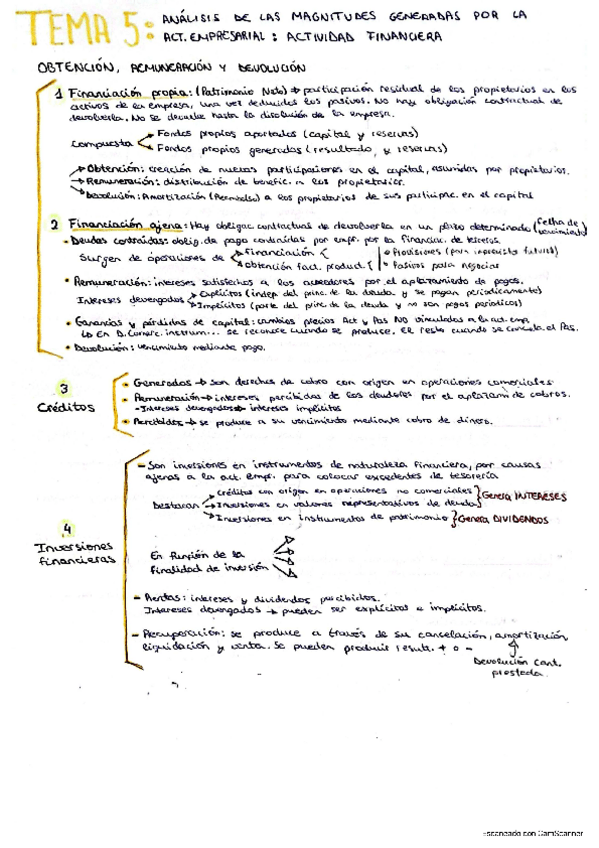 TEMA 5: ANÁLISIS DE LAS MAGNITUDES GENERADAS POR LA
ACT. EMPRESARIAL: ACTIVIDAD FINANCIERA
OBTENCIÓN, REMUNERACIÓN Y DEVOLUCIÓN
1 Financiación propia: (Patrimonio Neto) → participación residual de los propietarios en los
activos de la empresa, una vez deducidos los pasivos. No hay obligación contractual de
devolverla. No se devuelve hasta la disolución de la empresa.
Compuesta → Fondos propios aportados (capital y reservas)
→ Fondos propios generados (resultado y reservas)
→ Obtención: creación de nuevas participaciones en el capital, asumidas por propietarios.
→ Remuneración: distribución de benefic. a los propietarios.
→ Devolución: Amortización (Reembolso) a los propietarios de sus particip. en el capital
2 Financiación ajena: Hay obligac. contractual de devolverla en un plazo determinado (fecha de vencimiento)
• Deudas contraídas: oblig. de pago contraídas por empr. por la financiac. de terceros.
Surgen de operaciones de → Financiación { • Provisiones (para imprevisto futuros)
→ Obtención fact. product. { • Pasivos para negociar
• Remuneración: intereses satisfechos a los acreedores por el aplazamiento de pagos.
Intereses devengados → Explícitos (indep. del princ. de la deuda y se pagan periódicamente)
→ Implícitos (parte del princ. de la deuda y no son pagos periódicos)
• Ganancias y pérdidas de capital: cambios precios Act y Pas NO vinculados a la act. emp.
instrum... se reconoce cuando se produce. El resto cuando se cancela el Pas.
• Devolución: vencimiento mediante pago.
3
Créditos
• Generados → son derechos de cobro con origen en operaciones comerciales
• Remuneración → intereses percibidos de los deudores por el aplazam. de cobros.
- Intereses devengados → intereses implícitos
• Percibidos → se produce a su vencimiento mediante cobro de dinero.
4
Inversiones
financieras
- Son inversiones en instrumentos de naturaleza financiera, por causas
ajenas a la act. empr. para colocar excedentes de tesorería
Destacan → Créditos con origen en operaciones no comerciales
→ Inversiones en valores representativos de deuda } Genera INTERESES
→ Inversiones en instrumentos de patrimonio } Genera DIVIDENDOS
En función de la
finalidad de inversión
- Rentas: intereses y dividendos percibidos.
Intereses devengados → pueden ser explícitos e implícitos.
- Recuperación: se produce a través de su cancelación, amortización,
liquidación y venta. Se pueden producir result. + o -
Devolución cant.
prestada.
Escaneado con CamScanner